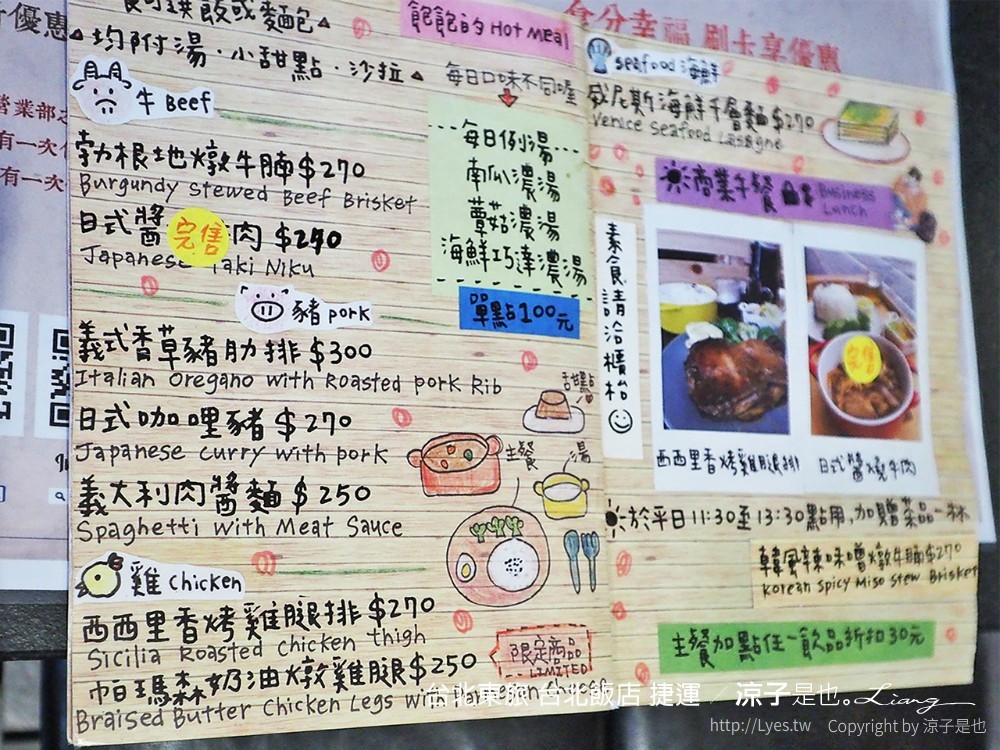 均附湯．小甜點．沙拉
牛 Beef
勃根地燉牛腩$270
Burgundy stewed Beef Brisket
日式醬
完售
肉 $290
Japanese Yaki Niku
豬 pork
義式香草豬肋排 $300
Italian Oregano with Roasted pork Rib
日式咖哩豬 $270
Japanese curry with pork
義大利肉醬麵 $250
Spaghetti with Meat Sauce
雞 chicken
西西里香烤雞腿排 $270
Sicilia Roasted chicken thigh
帕瑪森奶油燉雞腿$250
Braised Butter Chicken Legs with Parmesan cheese
飽飽的 Hot Meal
每日口味不同喔
每日例湯
南瓜濃湯
蘑菇濃湯
海鮮巧達濃湯
單點100元
甜點
主餐
湯
限定商品
LIMITED
食分幸福 刷卡享優惠
seafood 海鮮
威尼斯海鮮千層麵$270
Venice seafood Lasagne
商業午餐
Business
Lunch
素食請洽櫃枱
完售
西西里香烤雞腿排
日式醬燒牛肉
於平日11:30至13:30點用,加贈菜品一杯
韓風辣味噌燉牛腩$270
Korean Spicy Miso Stew Brisket
主餐加點任一飲品折扣30元
優惠
營業部
有一次
有一次
台北東旅 台北飯店 捷運 ／ 涼子是也。Liang
http://Lyes.tw Copyright by 涼子是也